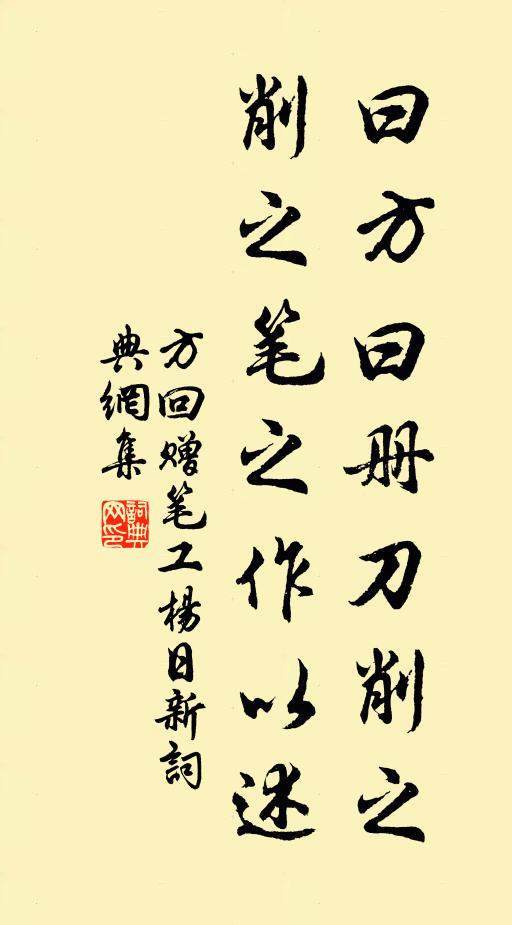 曰方曰册刀削之
削之笔之作以述
方回赠笔工楊日新詞
典網集
詞典
网印